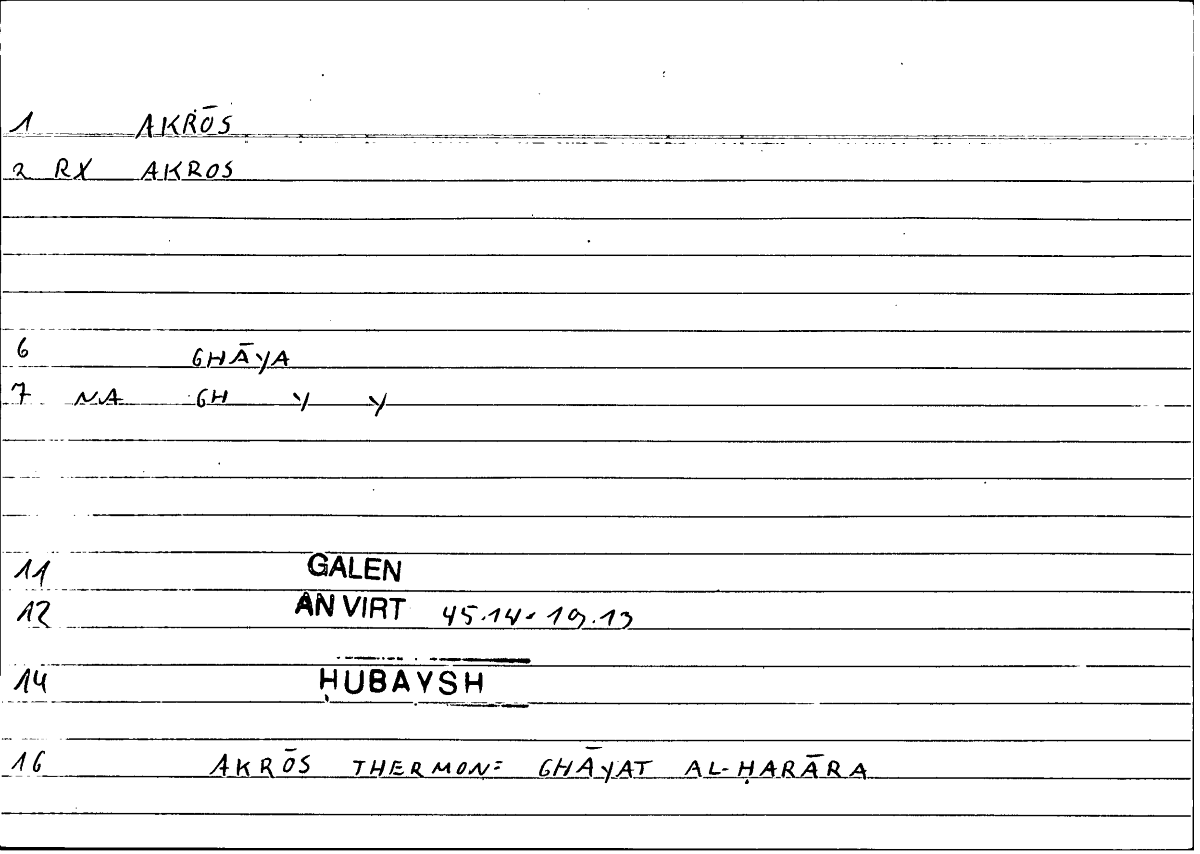 1 AKRŌS
2 RX AKROS
6 GHĀYA
7 NA GH Y Y
11 GALEN
12 AN VIRT 45.14 = 19.13
14 ḤUBAYSH
16 AKRŌS THERMON = GHĀYAT AL-ḤARĀRA